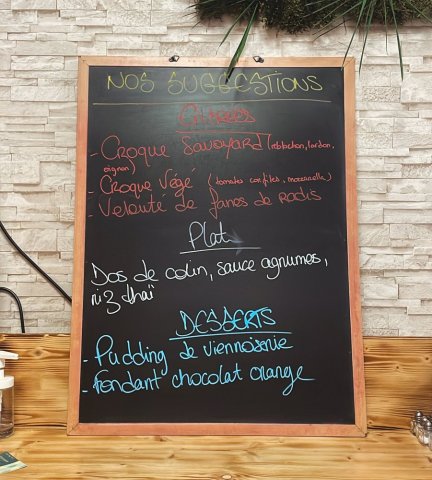 NOS SUGGESTIONS
Entrées
- Croque Savoyard (reblochon, lardon,
oignon)
- Croque Végé (tomates confites, mozzarella)
- Velouté de fanes de radis
Plat
Dos de colin, sauce agrumes,
riz thaï
DESSERTS
- Pudding de viennoiserie
- Fondant chocolat orange